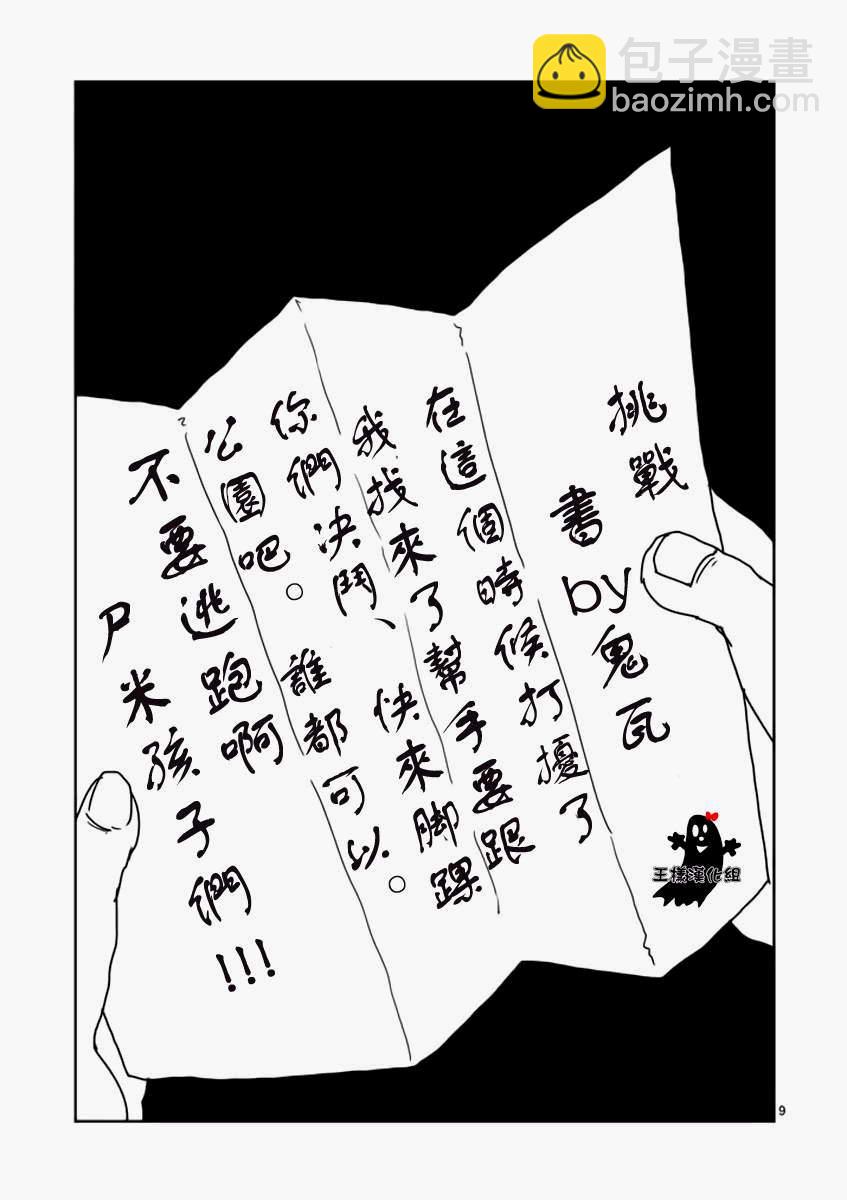 包子漫畫
baozimh.com
挑戰
書by鬼瓦
在這個時候打擾了
我找來了幫手要跟
你們決鬥、快來脚踝
公園吧。誰都可以。
不要逃跑啊
尸米孩子們!!!
王樣漢化組
9